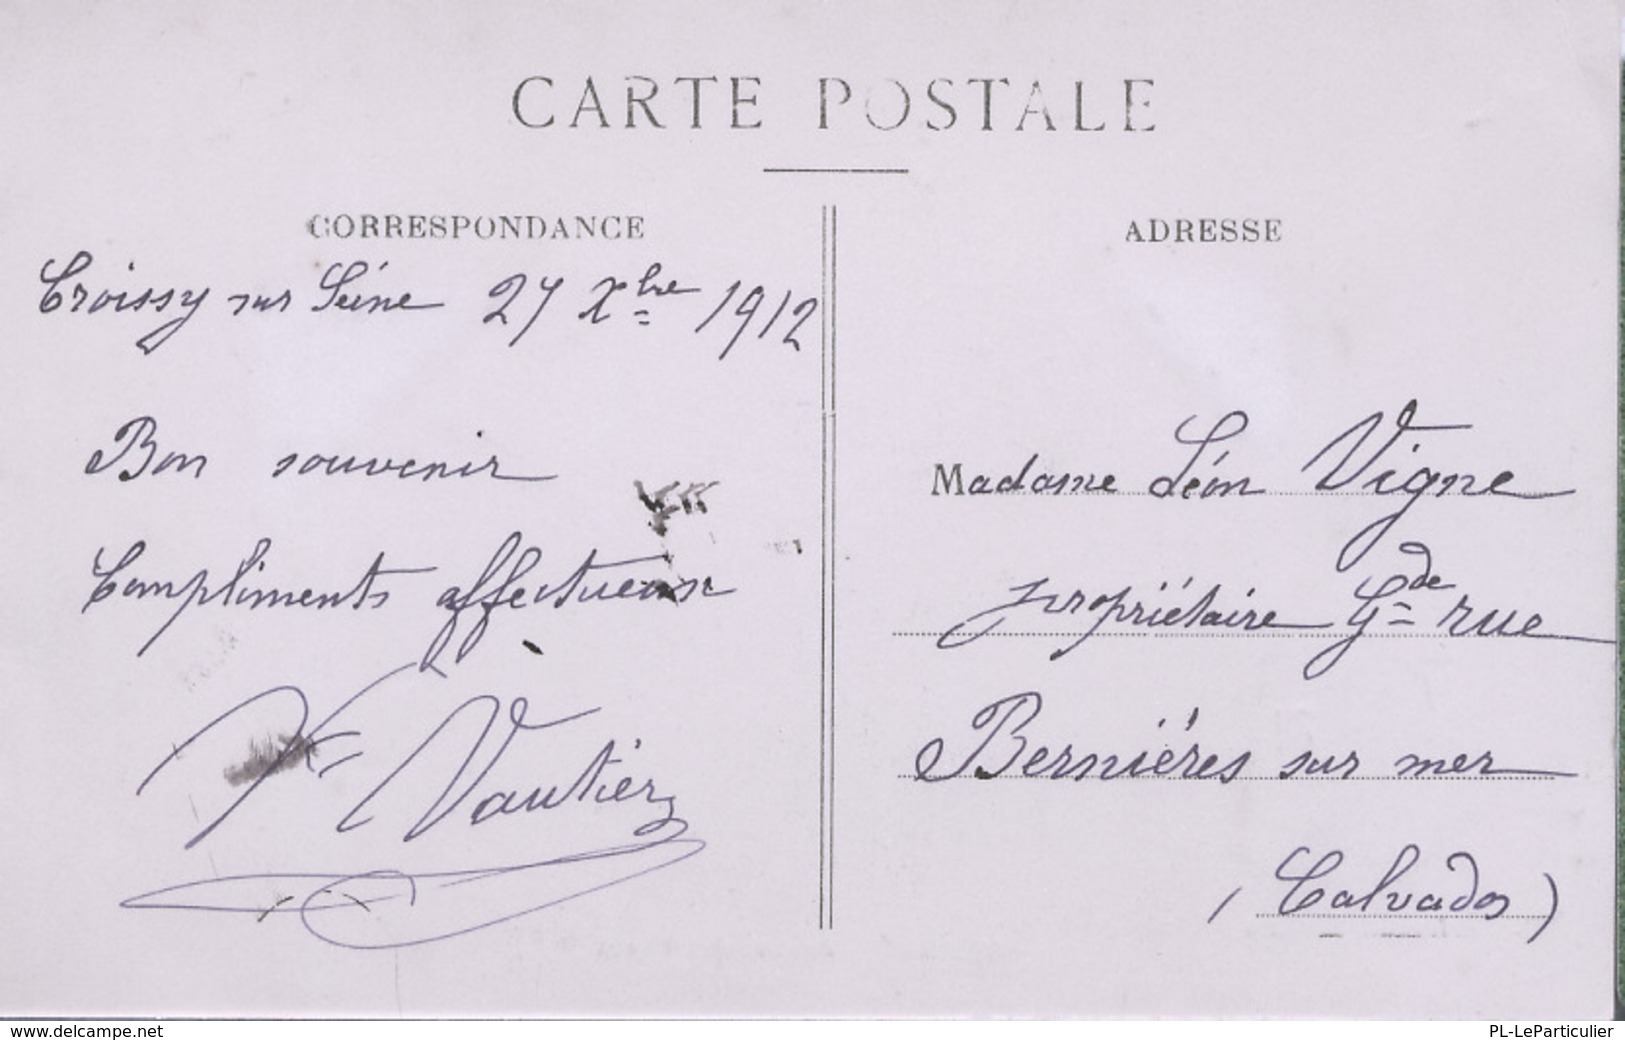 CARTE POSTALE
CORRESPONDANCE
Croissy sur Seine 27 Xbre 1912
Bon souvenir
Compliments affectueux
Vautier
ADRESSE
Madame Léon Vigne
propriétaire Gde rue
Bernières sur mer
(Calvados)
www.delcampe.net
PL-LeParticulier